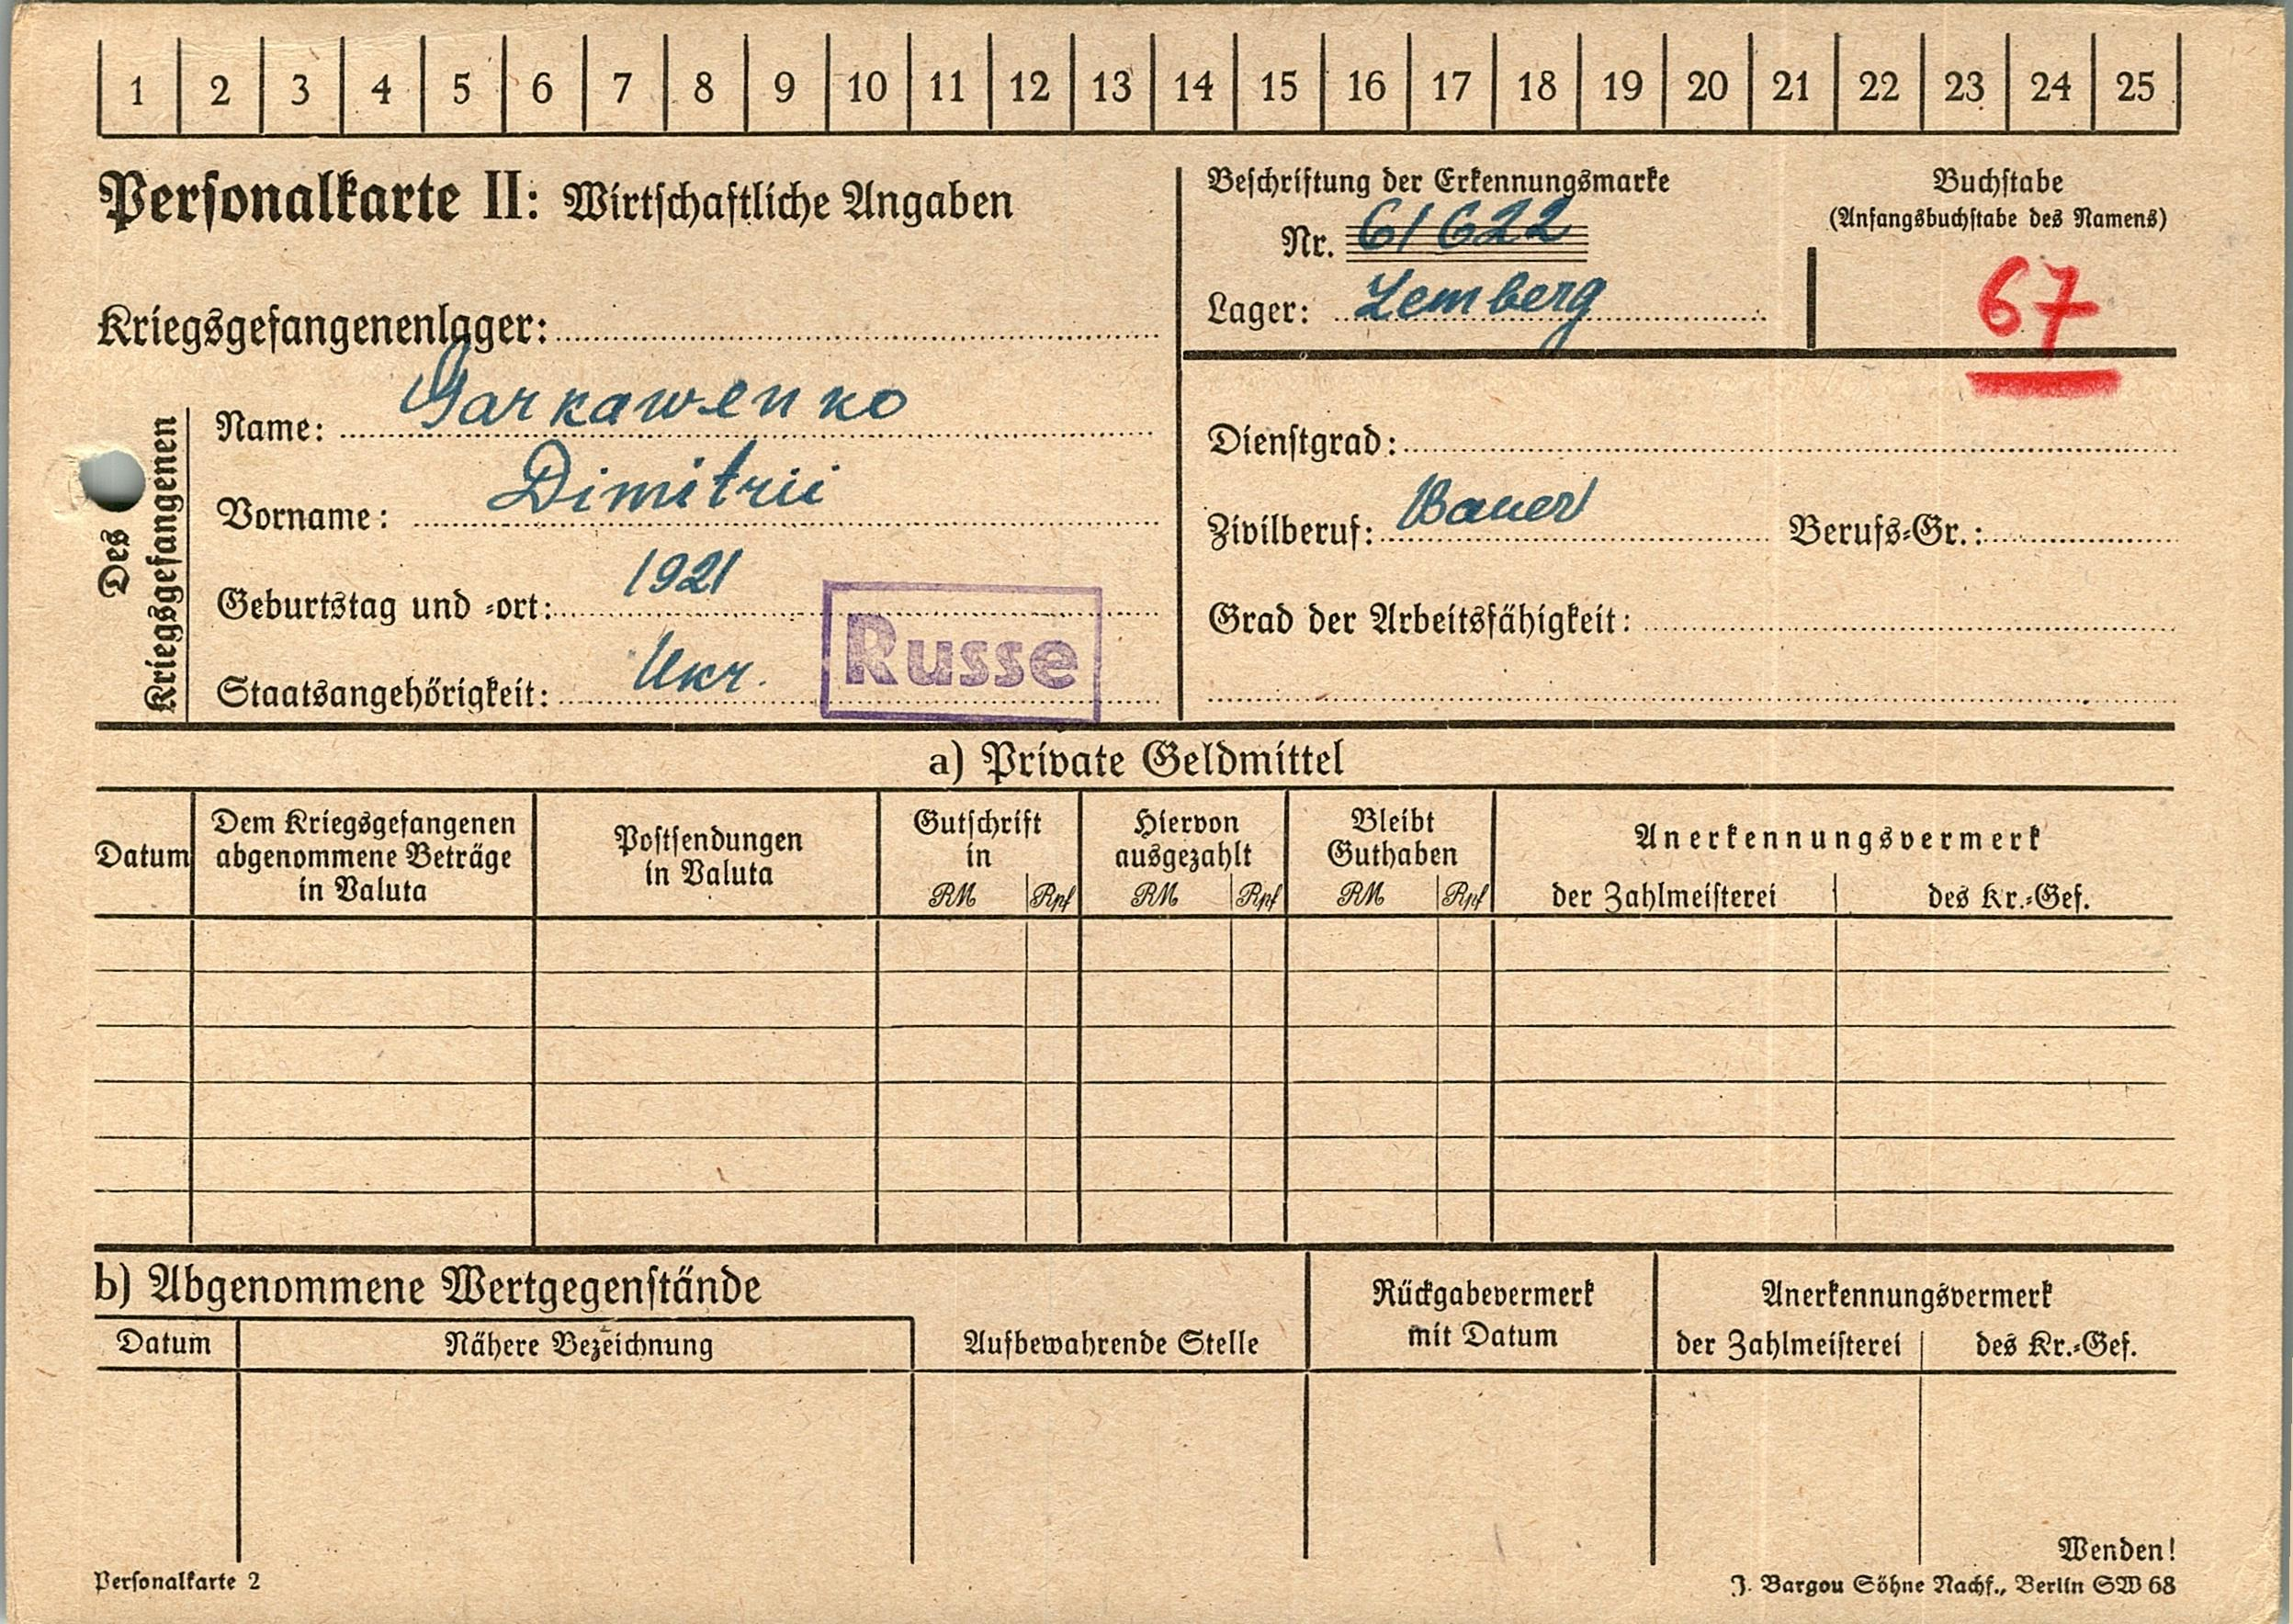 1 2 3 4 5 6 7 8 9 10 11 12 13 14 15 16 17 18 19 20 21 22 23 24 25
Personalkarte II: Wirtschaftliche Angaben
Beschriftung der Erkennungsmarke
Nr. 61622
Lager: Lemberg
Buchstabe
(Anfangsbuchstabe des Namens)
67
Kriegsgefangenenlager:
Des Kriegsgefangenen
Name: Garkawenko
Vorname: Dimitrii
Geburtstag und =ort: 1921
Staatsangehörigkeit: Ukr. Russe
Dienstgrad:
Zivilberuf: Bauer Berufs=Gr.:
Grad der Arbeitsfähigkeit:
a) Private Geldmittel
Datum
Dem Kriegsgefangenen
abgenommene Beträge
in Valuta
Postsendungen
in Valuta
Gutschrift
in
RM Rpf
Hiervon
ausgezahlt
RM Rpf
Bleibt
Guthaben
RM Rpf
Anerkennungsvermerk
der Zahlmeisterei des Kr.=Gef.
b) Abgenommene Wertgegenstände
Datum Nähere Bezeichnung
Aufbewahrende Stelle
Rückgabevermerk
mit Datum
Anerkennungsvermerk
der Zahlmeisterei des Kr.=Gef.
Wenden!
Personalkarte 2
J. Bargou Söhne Nachf., Berlin SW 68